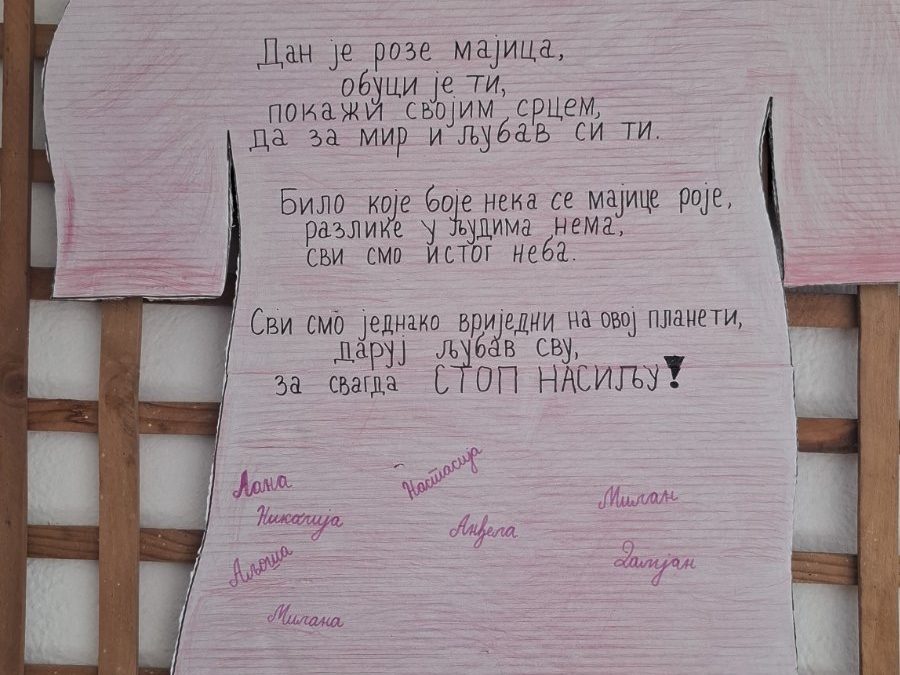 Дан је розе мајица,
обуци је ти,
покажи својим срцем,
да за мир и љубав си ти.
Било које боје нека се мајице роје,
разлике у људима нема,
сви смо истог неба.
Сви смо једнако вриједни на овој планети,
даруј љубав сву,
за свагда СТОП НАСИЉУ!
Лана
Настасија
Милан
Николија
Анђела
Аљоша
Дамјан
Милана